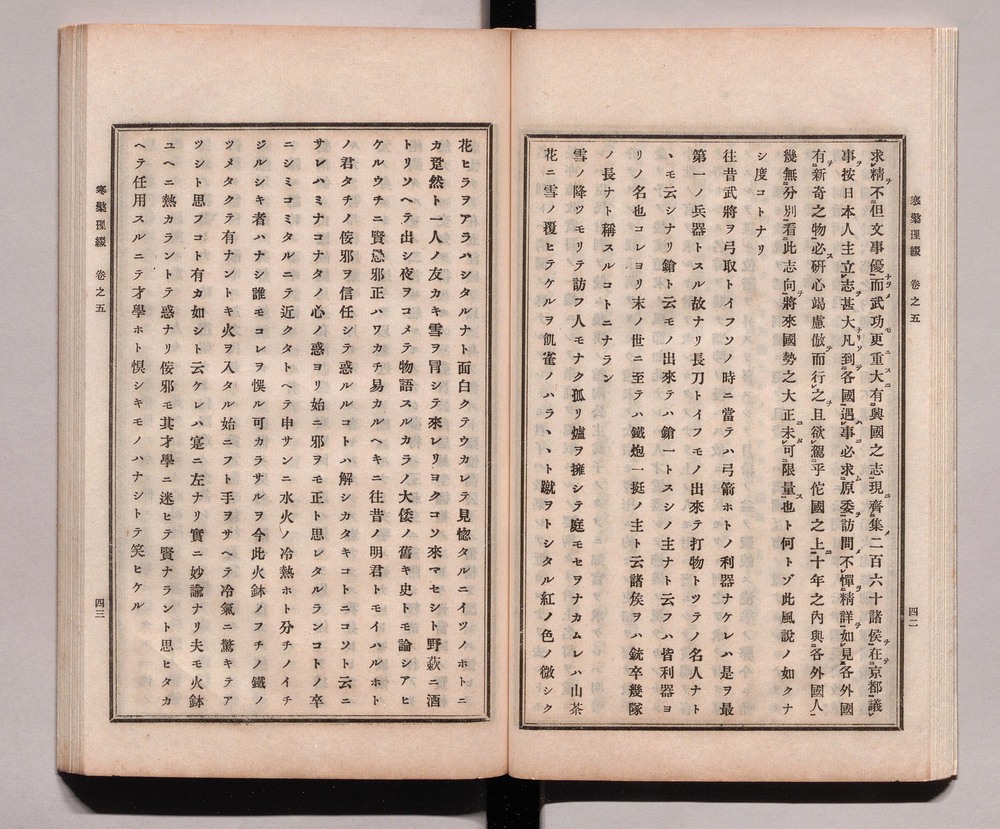 寒檠璅綴 卷之五
四二
求精不但文事優而武功更重大有興國之志現齊集二百六十諸侯在京都議
事按日本人主立志甚大凡到各國遇事必求原委訪問不憚精詳如見各外國
有新奇之物必研心竭慮倣而行之且欲駕乎佗國之上十年之內與各外國人
幾無分別看此志向將來國勢之大正未可限量也ト何トゾ此風說ノ如クナ
シ度コトナリ
往昔武將ヲ弓取トイフソノ時ニ當テハ弓箭ホトノ利器ナケレハ是ヲ最
第一ノ兵器トスル故ナリ長刀トイフモノ出來テ打物トツテノ名人ナト
ヽモ云シナリ鎗ト云モノ出來テハ鎗一トスシノ主ナト云フハ皆利器ヨ
リノ名也コレヨリ末ノ世ニ至テハ鐵炮一挺ノ主ト云諸矦ヲハ銃卒幾隊
ノ長ナト稱スルコトニナラン
雪ノ降ツモリテ訪フ人モナク孤リ爐ヲ擁シテ庭モセヲナカムレハ山茶
花ニ雪ノ覆ヒテケルヲ飢雀ノハラヽヽト蹴ヲトシタル紅ノ色ノ微シク
花ヒラヲアラハシタルナト面白クテウカレテ見惚タルニイツノホトニ
カ跫然ト一人ノ友カキ雪ヲ冒シテ來レリヨクコソ來マセシト野蔌ニ酒
トリソヘテ出シ夜ヲコメテ物語スルカラノ大倭ノ舊キ史トモ論シアヒ
ケルウチニ賢忌邪正ハワカチ易カルヘキニ往昔ノ明君トモイハルホト
ノ君タチノ佞邪ヲ信任シテ惑ルルコトハ解シカタキコトニコソト云ニ
サレハミナコナタノ心ノ惑ヨリ始ニ邪ヲモ正ト思レタルランコトノ卒
ニシミコミタルニテ近クタトヘテ申サンニ水火ノ冷熱ホト分チノイチ
ジルシキ者ハナシ誰モコレヲ悞ル可カラザルヲ今此火鉢ノフチノ鐵ノ
ツメタクテ有ナントキ火ヲ入タル始ニフト手ヲサヘテ冷氣ニ驚キテア
ツシト思フコト有カ如シト云ケレハ寔ニ左ナリ實ニ妙諭ナリ夫モ火鉢
ユヘニ熱カラントテ惑ナリ佞邪モ其才學ニ迷ヒテ賢ナラント思ヒタカ
ヘテ任用スルニテ才學ホト悞シキモノハナシトテ笑ヒケル
寒檠璅綴 卷之五
四三